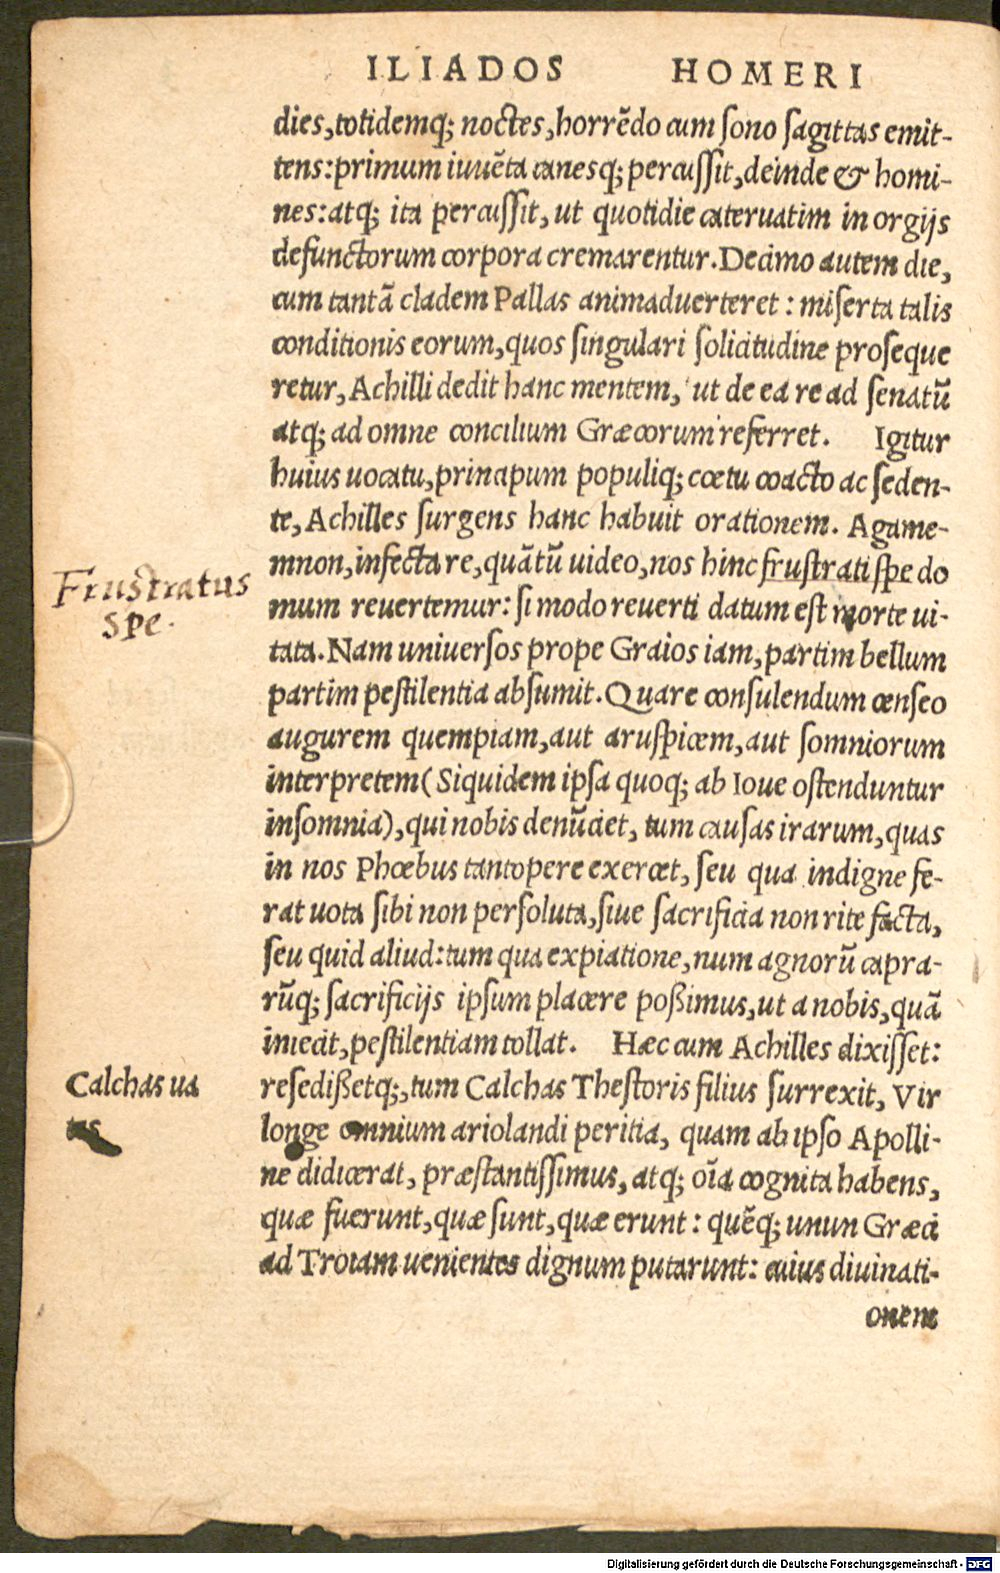 ILIADOS HOMERI
dies,totidemq; noctes,horrēdo cum ſono ſagittas emit-
tens:primum iuuēta canesq; percuſſit,deinde & homi-
nes:atq; ita percuſſit, ut quotidie cateruatim in orgijs
defunctorum corpora cremarentur.Decimo autem die,
cum tantā cladem Pallas animaduerteret : miſerta talis
conditionis eorum,quos ſingulari ſolicitudine proſeque
retur, Achilli dedit hanc mentem, ut de ea re ad ſenatū
atq; ad omne concilium Græcorum referret. Igitur
huius uocatu,principum populiq; cœtu coacto ac ſeden-
te, Achilles ſurgens hanc habuit orationem. Agame-
mnon,infecta re,quātū uideo,nos hinc fruſtrati ſpe do
Frustratus
spe.
mum reuertemur: ſi modo reuerti datum est morte ui-
tata. Nam uniuerſos prope Graios iam,partim bellum
partim peſtilentia abſumit. Quare conſulendum cenſeo
augurem quempiam,aut aruſpicem,aut ſomniorum
interpretem(Siquidem ipſa quoq; ab Ioue oſtenduntur
inſomnia),qui nobis denūciet, tum cauſas irarum,quas
in nos Phœbus tantopere exercet, ſeu qua indigne fe-
rat uota ſibi non perſoluta,ſiue ſacrificia non rite facta,
ſeu quid aliud:tum qua expiatione,num agnorū capra-
rūq; ſacrificijs ipſum placere poßimus,ut a nobis,quā
iniecit,peſtilentiam tollat. Hæc cum Achilles dixiſſet:
Calchas ua
tes
reſedißetq;,tum Calchas Theſtoris filius ſurrexit, Vir
longe omnium ariolandi peritia, quam ab ipſo Apolli-
ne didicerat, præſtantiſſimus, atq; oīa cognita habens,
quæ fuerunt,quæ ſunt,quæ erunt: quēq; unun Græci
ad Troiam uenientes dignum putarunt: cuius diuinati-
onem
Digitalisierung gefördert durch die Deutsche Forschungsgemeinschaft - DFG